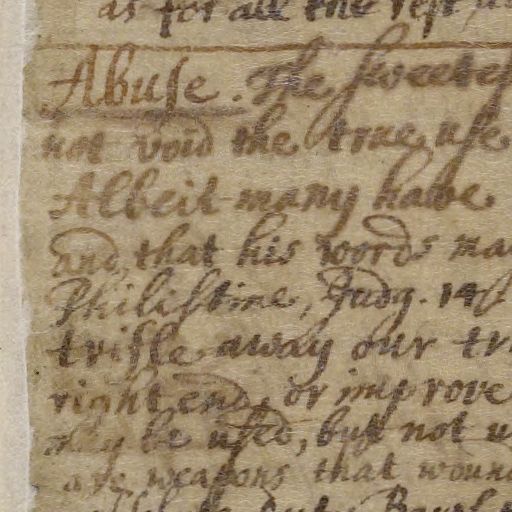 as for all the rest,
Abuse. The sweetes
not void the true use
Albeit many have
and, that his words may
Philistine, Judg. 14
trifle away our tr
right end, or improve
may be used, but not u
are weapons that wound